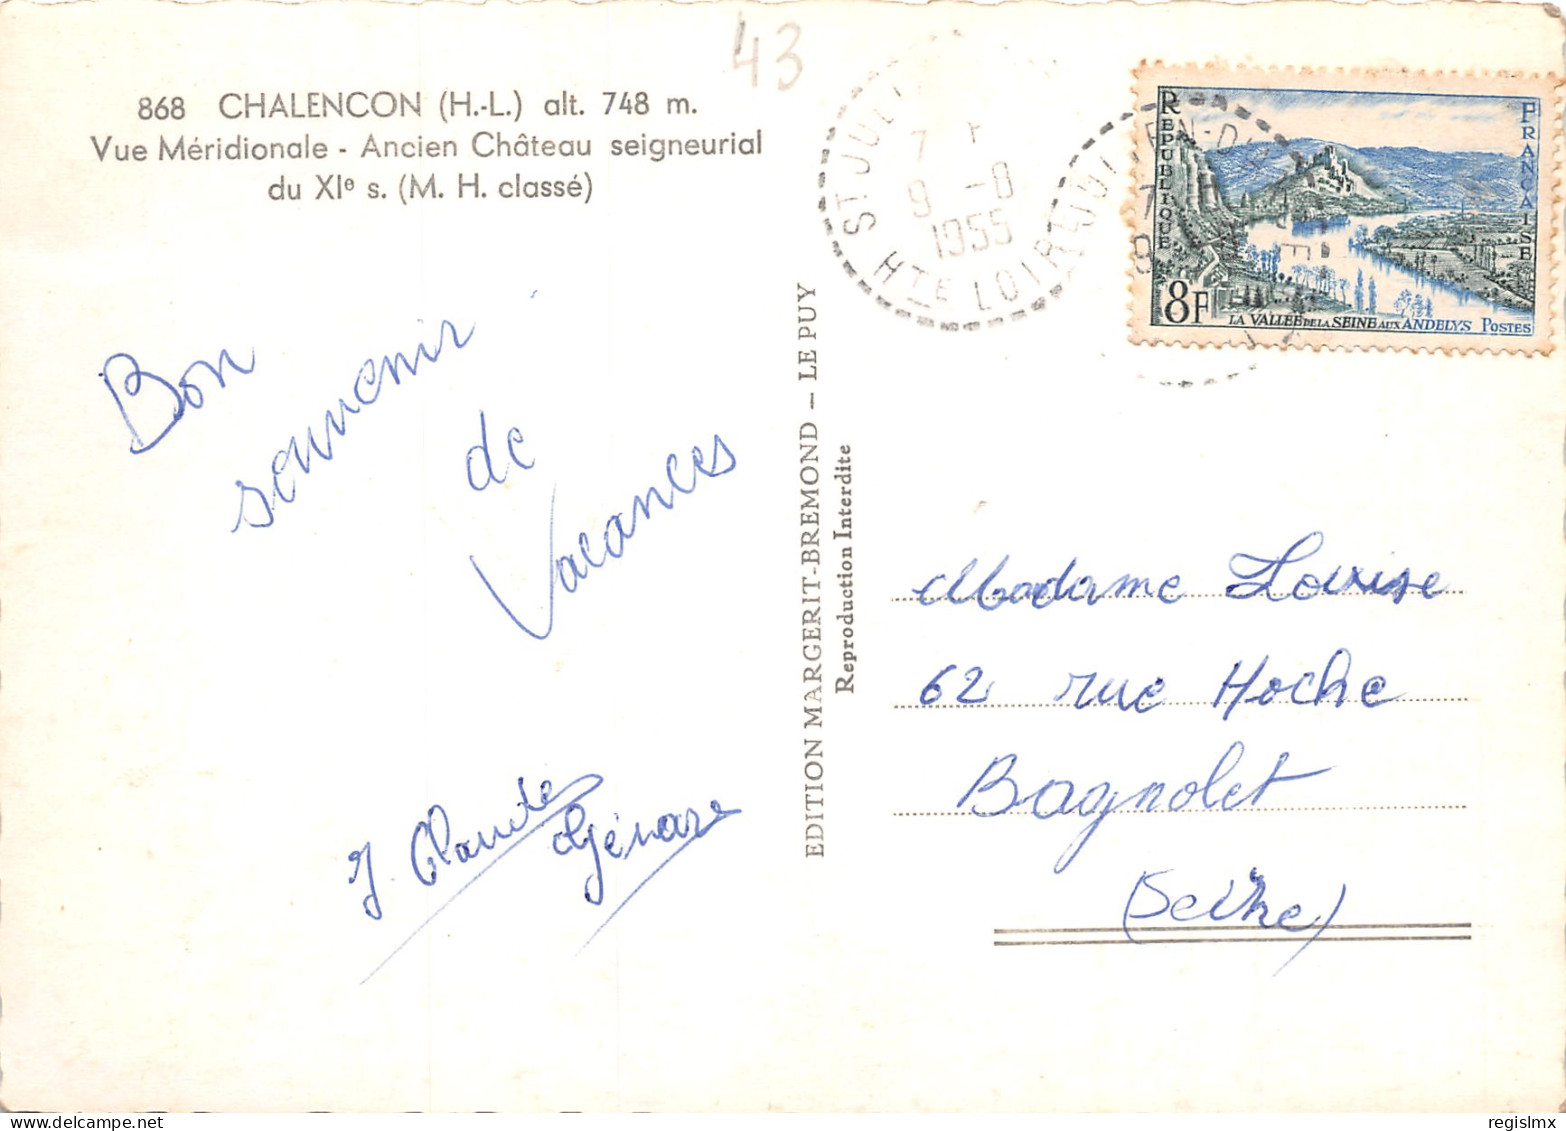 43
868 CHALENCON (H.-L.) alt. 748 m.
Vue Méridionale - Ancien Château seigneurial
du XIe s. (M. H. classé)
Bon
souvenir
de
Vacances
J. Claude
Génare
EDITION MARGERIT-BREMOND – LE PUY
Reproduction Interdite
ST JULI
7
9 -8
1955
HTE LOIRE
REPUBLIQUE
FRANÇAISE
8F
LA VALLEE DE LA SEINE AUX ANDELYS POSTES
Madame Louise
62 rue Hoche
Bagnolet
(Seine)
regislmx